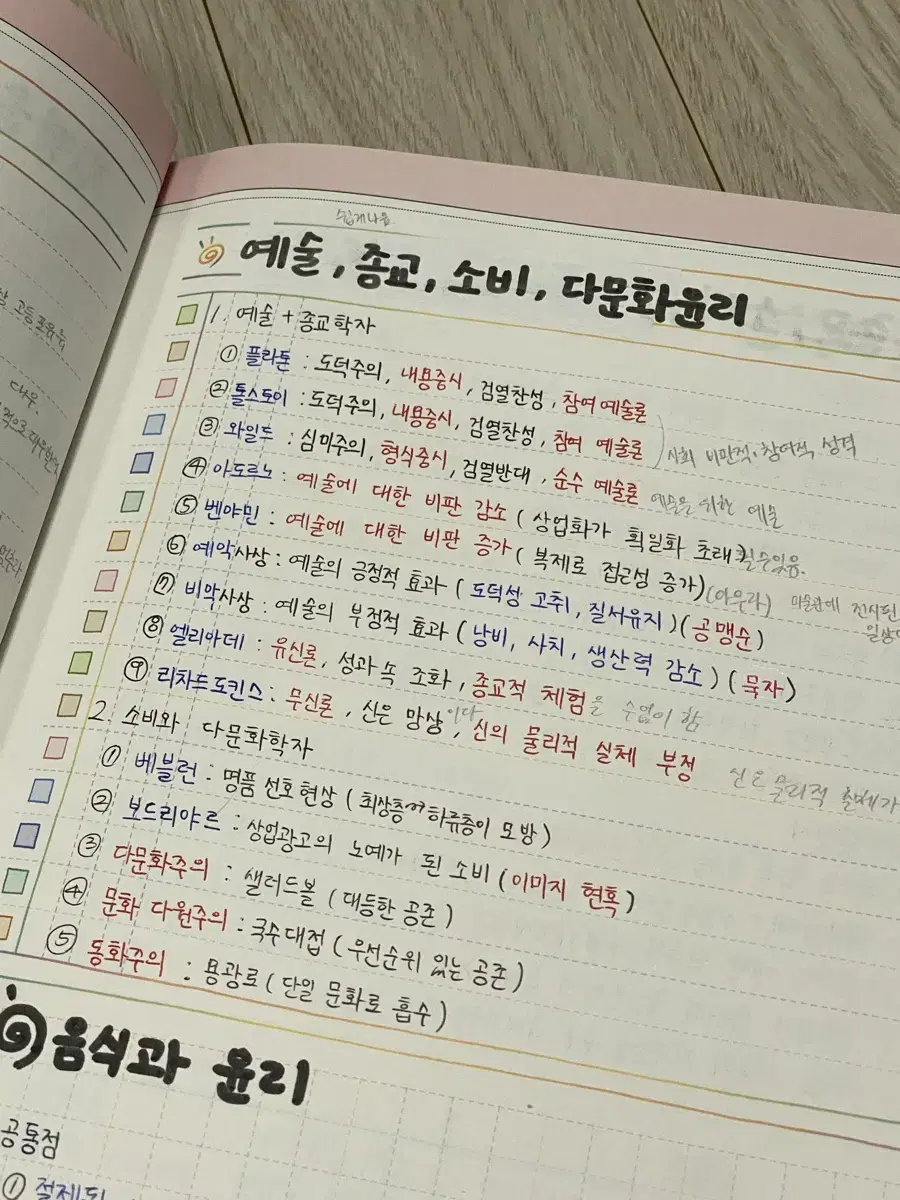 쉽게나옴
예술, 종교, 소비, 다문화윤리
1. 예술 + 종교학자
① 플라톤 : 도덕주의, 내용중시, 검열찬성, 참여예술론
② 톨스토이 : 도덕주의, 내용중시, 검열찬성, 참여 예술론
사회 비판적·참여적 성격
③ 와일드 : 심미주의, 형식중시, 검열반대, 순수 예술론 예술을 위한 예술
④ 아도르노 : 예술에 대한 비판 감소 (상업화가 획일화 초래)
⑤ 벤야민 : 예술에 대한 비판 증가 (복제로 접근성 증가) (아우라) 미술관에 전시된
⑥ 예악사상 : 예술의 긍정적 효과 (도덕성 고취, 질서유지) (공맹순)
⑦ 비악사상 : 예술의 부정적 효과 (낭비, 사치, 생산력 감소) (묵자)
⑧ 엘리아데 : 유신론, 성과 속 조화, 종교적 체험을 수없이 함
⑨ 리차드도킨스 : 무신론, 신은 망상이다, 신의 물리적 실체 부정 신은 물리적 실체가
2. 소비와 다문화학자
① 베블런 : 명품 선호 현상 (최상층↔하류층이 모방)
② 보드리야르 : 상업광고의 노예가 된 소비 (이미지 현혹)
③ 다문화주의 : 샐러드볼 (대등한 공존)
④ 문화 다원주의 : 국수대접 (우선순위 있는 공존)
⑤ 동화주의 : 용광로 (단일 문화로 흡수)
음식과 윤리
공통점
① 절제된